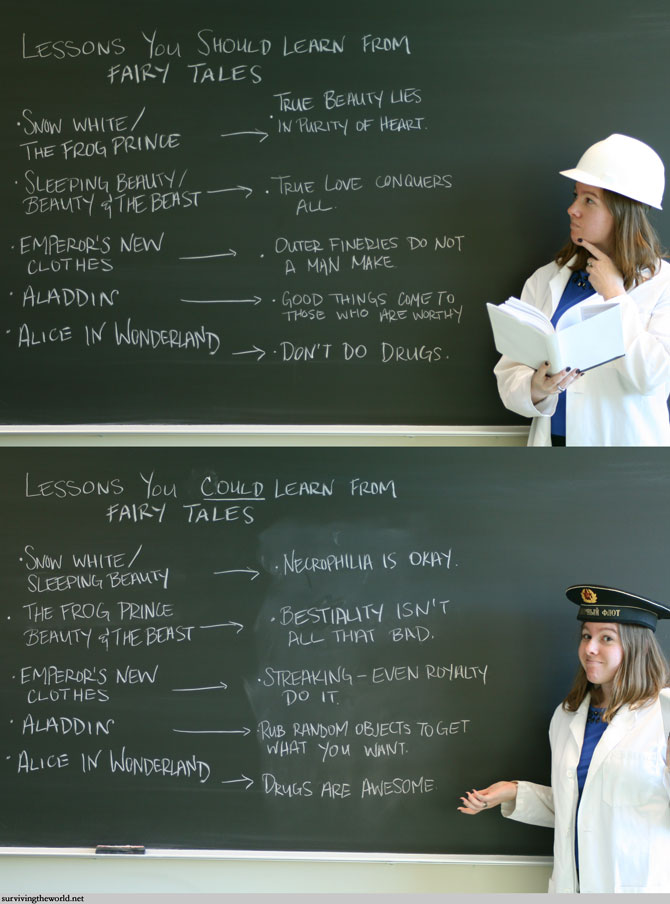 LESSONS YOU SHOULD LEARN FROM
FAIRY TALES
• SNOW WHITE/
THE FROG PRINCE
• TRUE BEAUTY LIES
IN PURITY OF HEART.
• SLEEPING BEAUTY/
BEAUTY & THE BEAST
• TRUE LOVE CONQUERS
ALL.
• EMPEROR'S NEW
CLOTHES
• OUTER FINERIES DO NOT
A MAN MAKE.
• ALADDIN
• GOOD THINGS COME TO
THOSE WHO ARE WORTHY
• ALICE IN WONDERLAND
• DON'T DO DRUGS.
LESSONS YOU COULD LEARN FROM
FAIRY TALES
• SNOW WHITE/
SLEEPING BEAUTY
• NECROPHILIA IS OKAY.
• THE FROG PRINCE
BEAUTY & THE BEAST
• BESTIALITY ISN'T
ALL THAT BAD.
• EMPEROR'S NEW
CLOTHES
• STREAKING – EVEN ROYALTY
DO IT.
• ALADDIN
• RUB RANDOM OBJECTS TO GET
WHAT YOU WANT.
• ALICE IN WONDERLAND
• DRUGS ARE AWESOME.
ФЛОТ
survivingtheworld.net